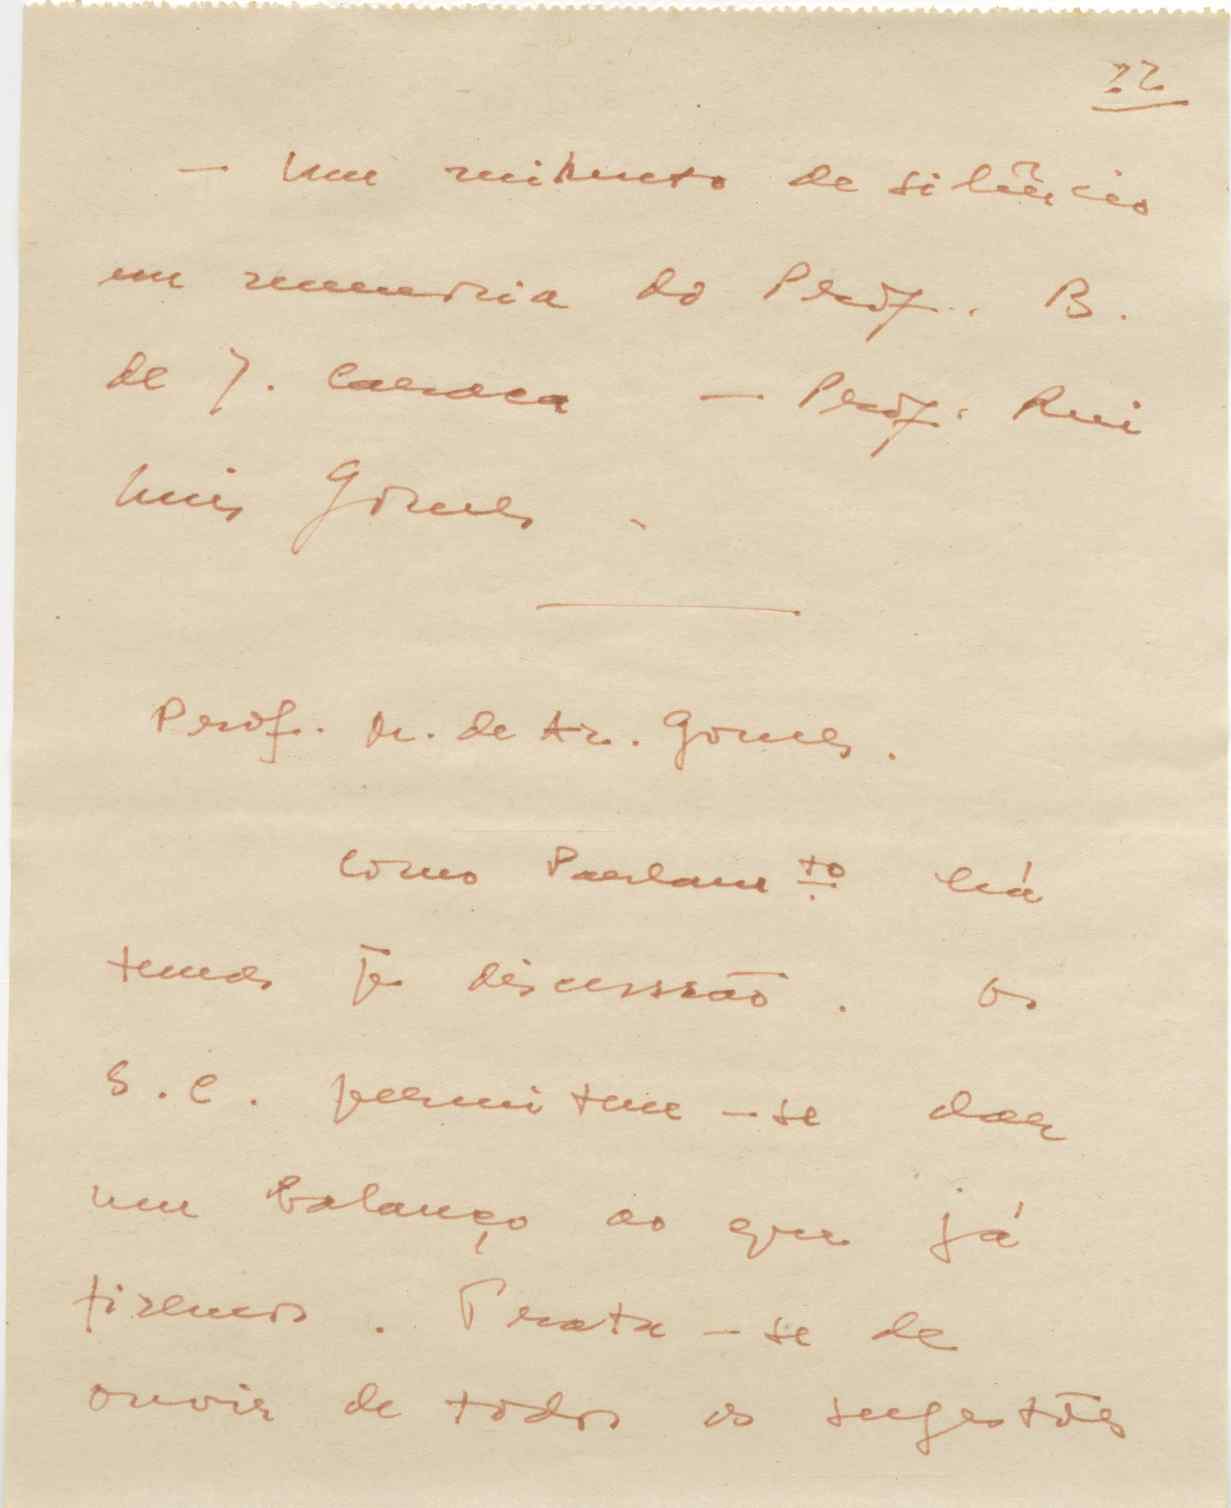 22
— Um minuto de silêncio
em memoria do Prof. B.
de J. Caraça — Prof. Rui
Luis Gomes.
Prof. M. de Az. Gomes.
Como Parlamto há
temas p. discussão. Os
S. C. permitem-se dar
um balanço ao que já
fizemos. Trata-se de
ouvir de todos as sugestões